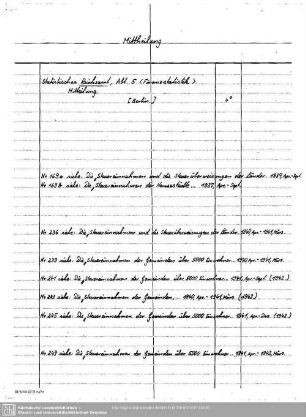 Mittheilung
Statistisches Reichsamt, Abt. 5 (Finanzstatistik).
Mitteilung.
[Berlin.] 4°
No 169a siehe: Die Steuereinnahmen und die Steuerüberweisungen der Länder. 1937, Apr.-Sept.
No 169b siehe: Die Steuereinnahmen der Hansestädte... 1937, Apr.-Sept.
No 236 siehe: Die Steuereinnahmen und die Steuerüberweisungen der Länder. 1940, Apr.-1941, März.
No 239 siehe: Die Steuereinnahmen der Gemeinden über 5000 Einwohner. 1940, Apr.-1941, März.
No 241 siehe: Die Steuereinnahmen der Gemeinden über 5000 Einwohner. 1941, Apr.-Sept. (1942)
No 243 siehe: Die Steuereinnahmen der Gemeinden, .. 1940, Apr.-1941, März. (1942)
No 245 siehe: Die Steuereinnahmen der Gemeinden über 5000 Einwohner. 1941, Apr.-Dez. (1942)
No 249 siehe: Die Steuereinnahmen der Gemeinden über 5000 Einwohner. 1941, Apr.-1942, März.
Sächsische Landesbibliothek -
Staats- und Universitätsbibliothek Dresden